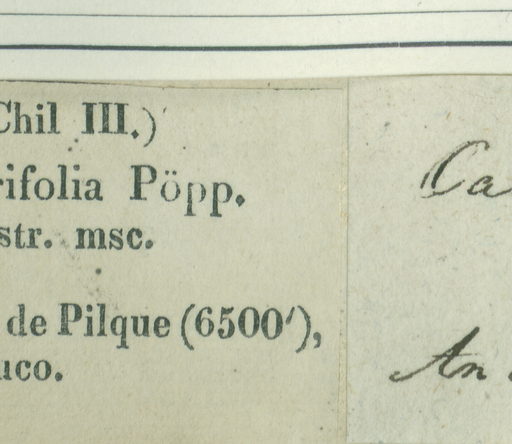 Chil III.)
rifolia Pöpp.
str. msc.
de Pilque (6500′),
uco.
Ca
An